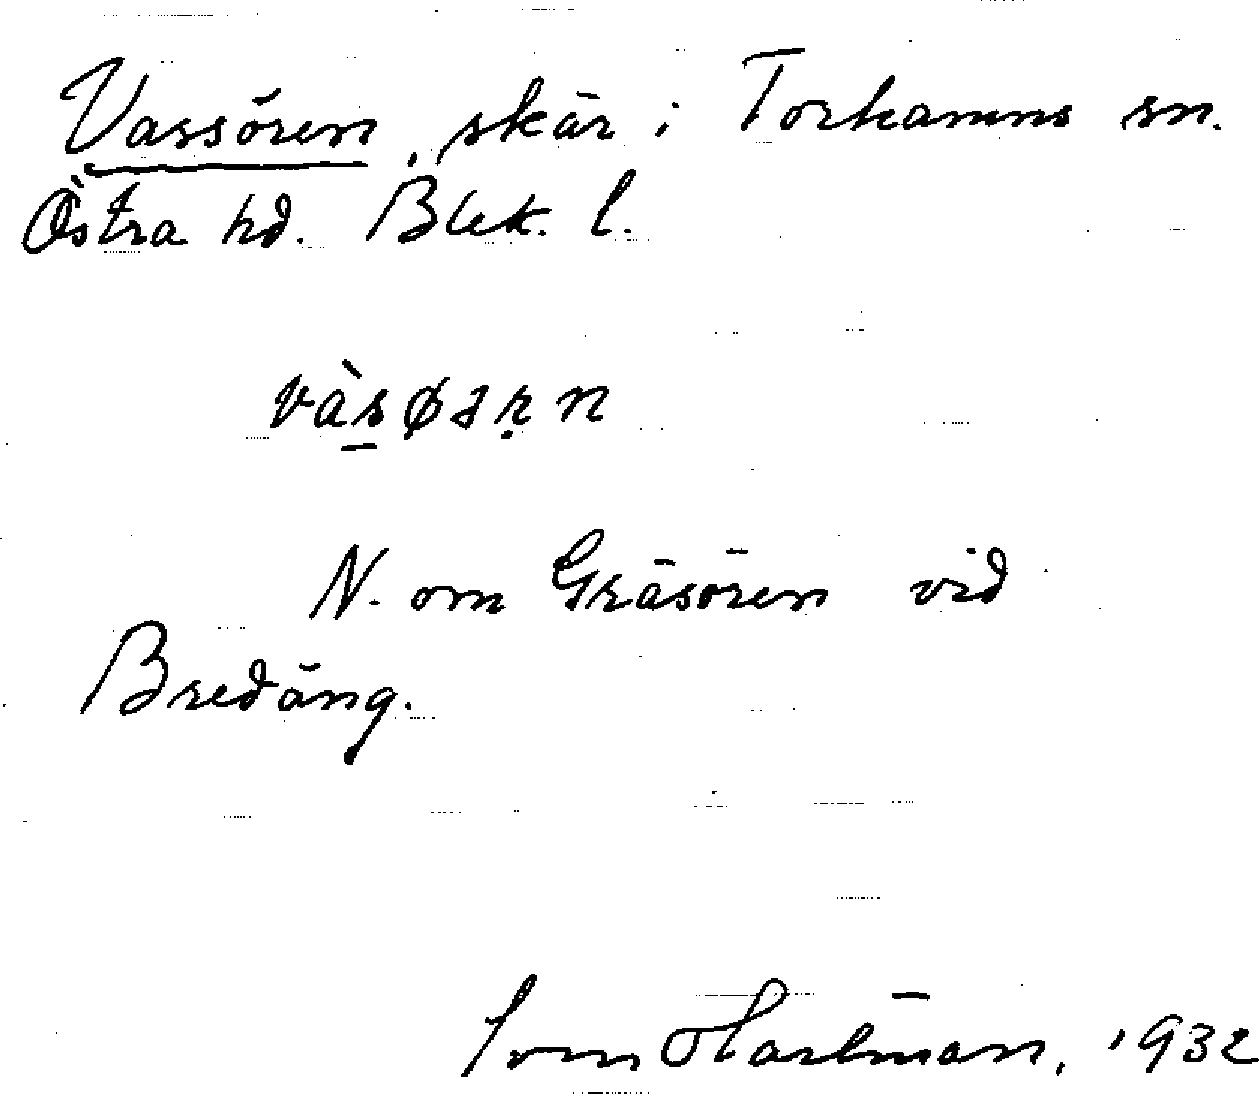 Vassören, skär i Torhamns sn.
Östra hd. Blek. l.
N. om Gräsören vid
Bredäng.
Tom Hartman, 1932